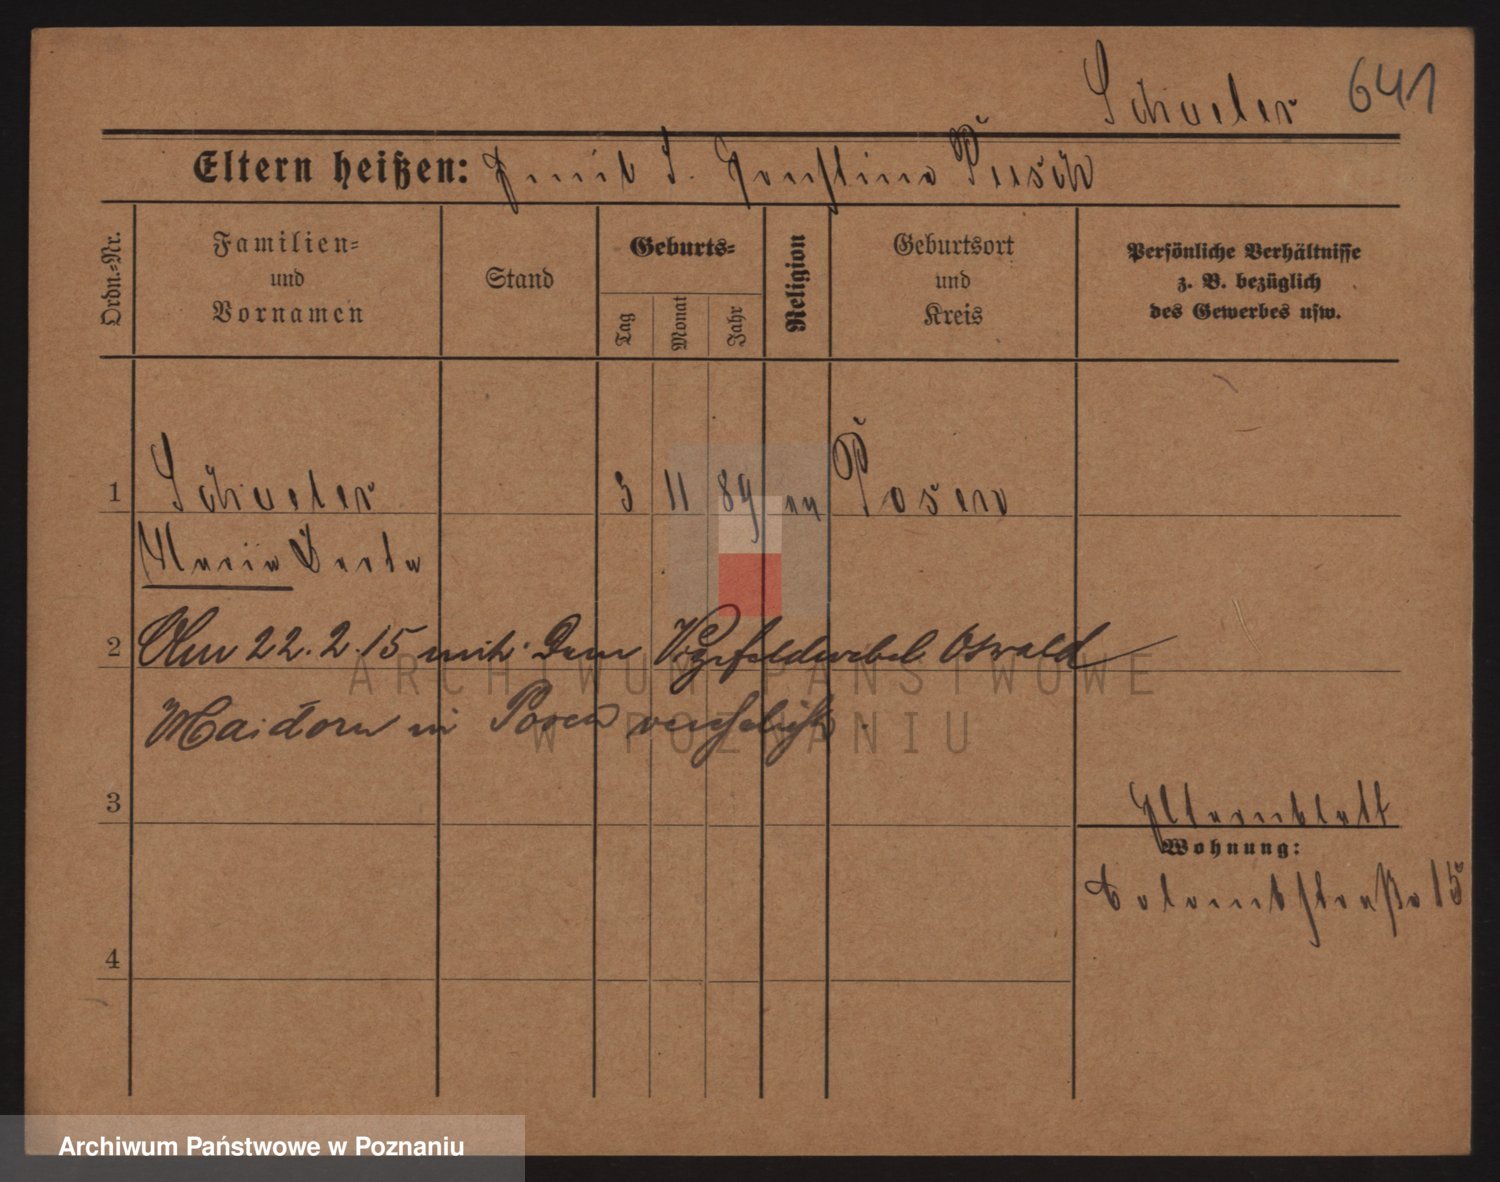 Schueler 641
Eltern heißen: Emil u. Ernstine Piesch
Ordn.-Nr.
Familien-
und
Vornamen
Stand
Geburts-
Tag
Monat
Jahr
Religion
Geburtsort
und
Kreis
Persönliche Verhältnisse
z. B. bezüglich
des Gewerbes usw.
1 Schueler 3 11 89 Posen
Maria Berta
2 Am 22. 2. 15 mit dem Vizefeldwebel Oswald
Maidorn in Posen verehelicht.
3
Elternblatt
Wohnung:
Colombstraße 15
4
ARCHIWUM PAŃSTWOWE
W POZNANIU
Archiwum Państwowe w Poznaniu